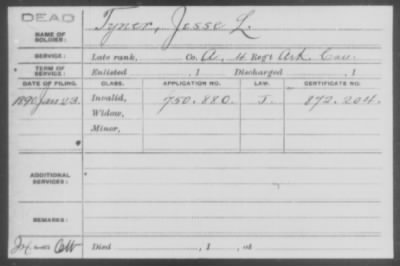 DEAD
NAME OF SOLDIER: Tyner, Jesse L.
SERVICE: Late rank, Co. A, 4 Regt Ark Cav.
TERM OF SERVICE: Enlisted , 1 Discharged , 1
DATE OF FILING. CLASS. APPLICATION NO. LAW. CERTIFICATE NO.
1890 Jan 23. Invalid, 750.880. J. 872.204.
Widow,
Minor,
ADDITIONAL SERVICES:
REMARKS:
Died , 1 , at